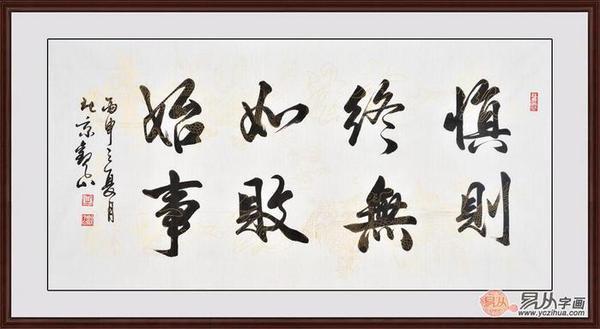 慎終如始
則無敗事
丙申之夏月
京
易从字画
www.yczihua.com
易从字画